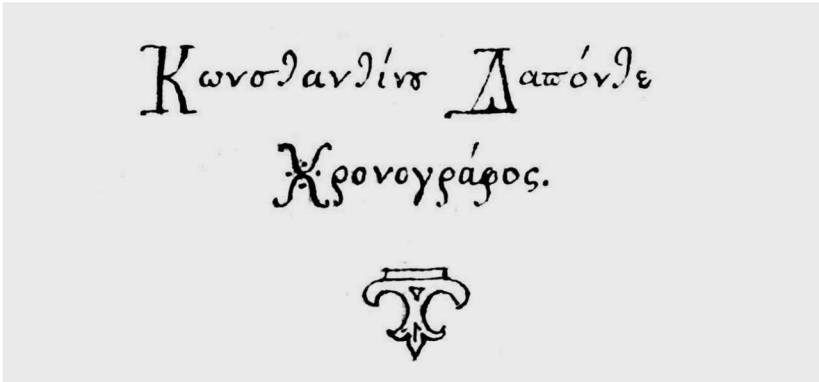 Κωνσταντίνȣ Δαπόντε
Χρονογράφος.